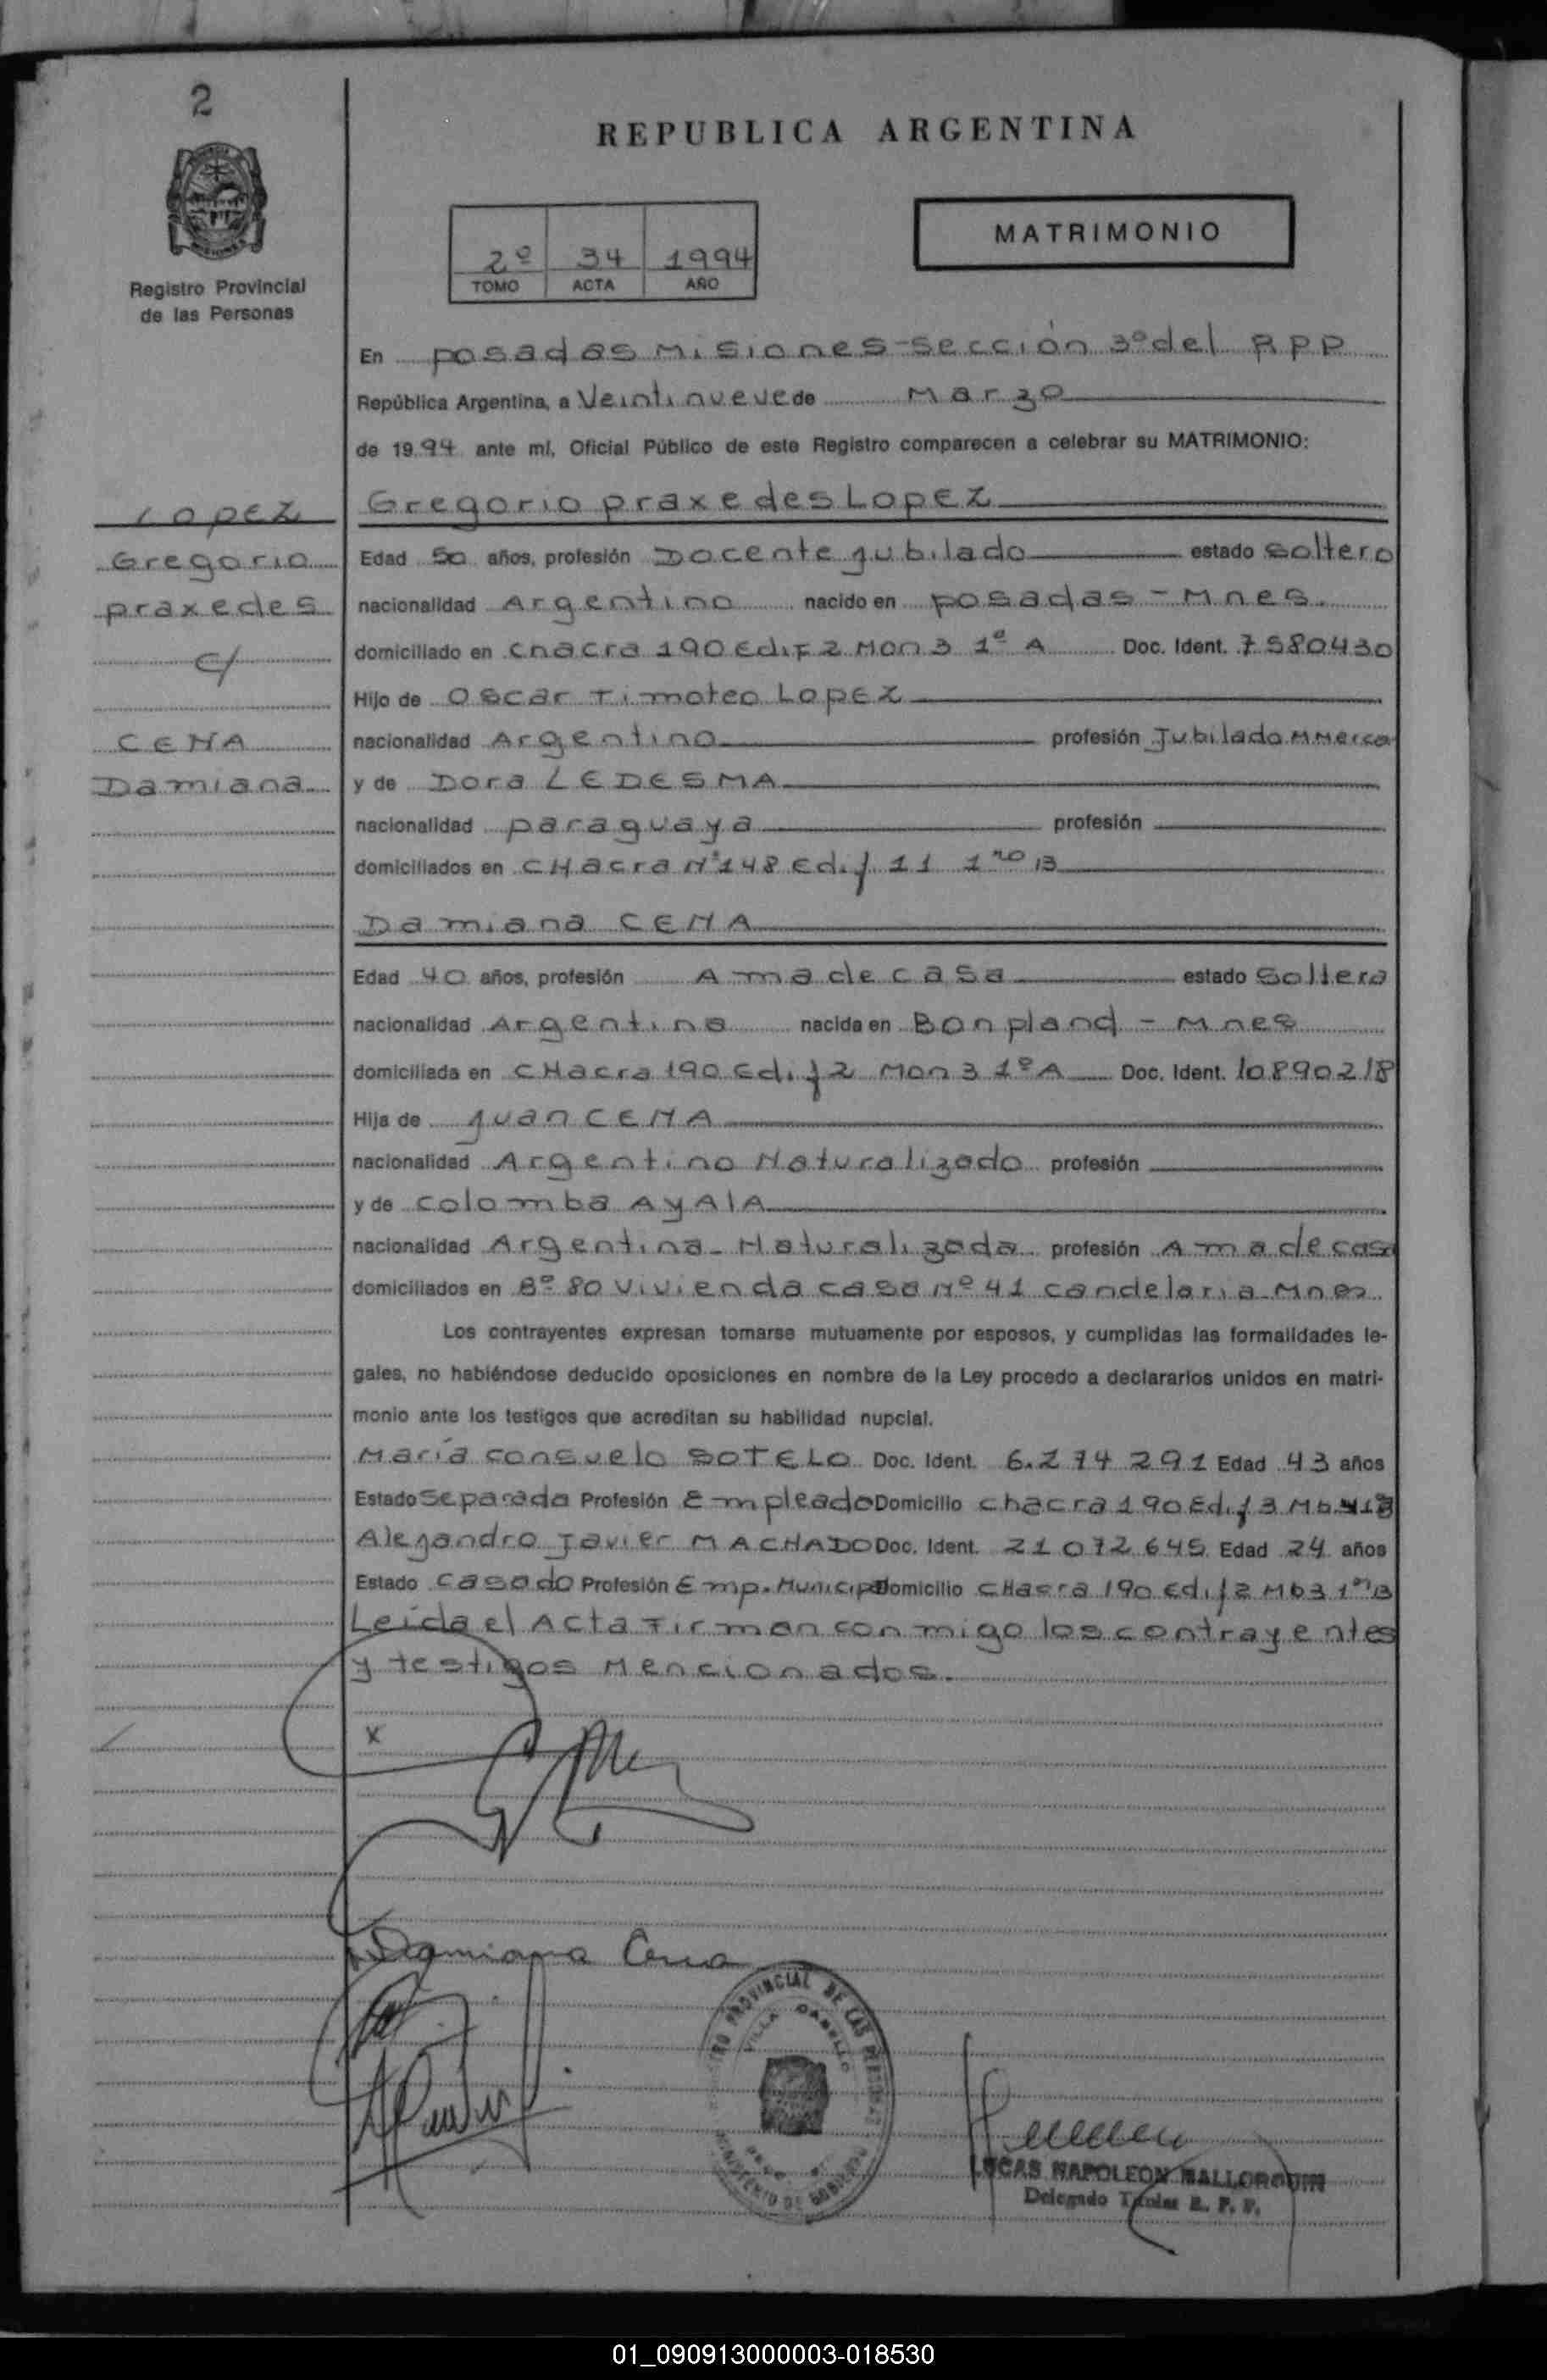 2
REPUBLICA ARGENTINA
MATRIMONIO
2º 34 1994
TOMO ACTA AÑO
Registro Provincial
de las Personas
En posadas Misiones-sección 3º del RPP
República Argentina, a Veintinueve de Marzo
de 1994 ante mí, Oficial Público de este Registro comparecen a celebrar su MATRIMONIO:
Lopez
Gregorio
praxedes
c/
CENA
Damiana
Gregorio praxedes Lopez
Edad 50 años, profesión Docente jubilado estado soltero
nacionalidad Argentino nacido en posadas - Mnes.
domiciliado en Chacra 190 Edif 2 Mon 3 1º A Doc. Ident. 7580430
Hijo de Oscar Timoteo Lopez
nacionalidad Argentino profesión Jubilado MMerca
y de Dora LEDESMA
nacionalidad paraguaya profesión
domiciliados en CHacra Nº148 Edif 11 1ro B
Damiana CENA
Edad 40 años, profesión Ama de casa estado Soltera
nacionalidad Argentina nacida en Bonpland - Mnes
domiciliada en CHacra 190 Edif 2 Mon 3 1º A Doc. Ident. 10890218
Hija de Juan CENA
nacionalidad Argentino Naturalizado profesión
y de Colomba AyAlA
nacionalidad Argentina - Naturalizada profesión Ama de casa
domiciliados en Bº 80 Vivienda casa Nº 41 Candelaria Mnes
Los contrayentes expresan tomarse mutuamente por esposos, y cumplidas las formalidades le-
gales, no habiéndose deducido oposiciones en nombre de la Ley procedo a declararlos unidos en matri-
monio ante los testigos que acreditan su habilidad nupcial.
María Consuelo SOTELO Doc. Ident. 6.274 291 Edad 43 años
Estado Separada Profesión Empleado Domicilio chacra 190 Edif 3 Mb
Alejandro Javier MACHADO Doc. Ident. 21 072 645 Edad 24 años
Estado casado Profesión Emp. Municip Domicilio CHacra 190 Edif 2 Mb3 1º B
Leída el Acta Firman con migo los contrayentes
y testigos Mencionados.
x
Damiana Cena
REGISTRO PROVINCIAL DE LAS PERSONAS
VILLA CABELLO
MINISTERIO DE GOBIERNO
LUCAS NAPOLEON MALLORQUIN
Delegado Titular R. P. P.
01_090913000003-018530